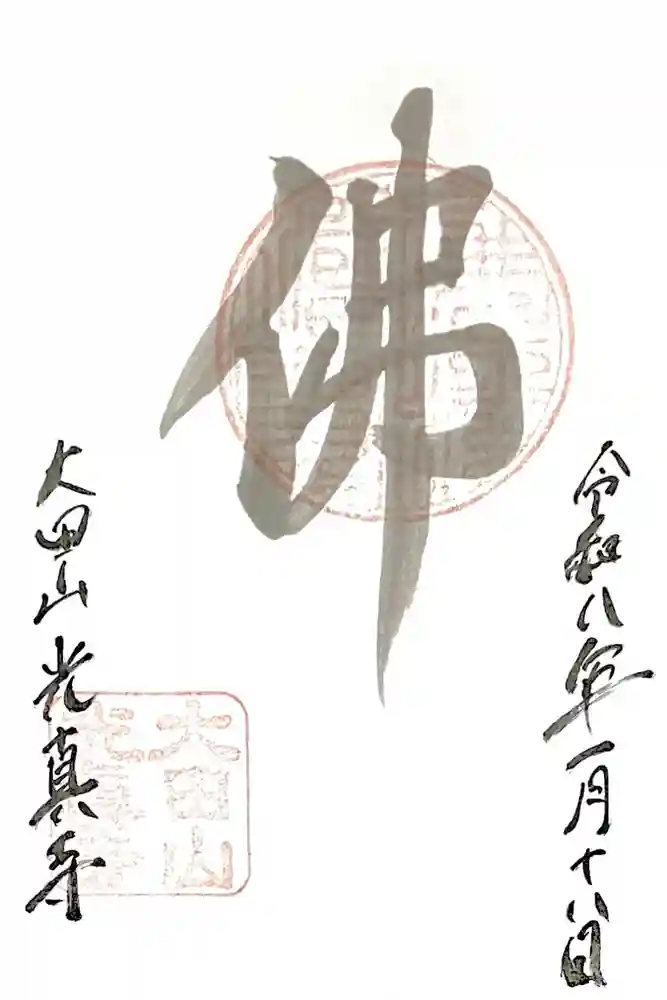 令和八年一月十八日
佛
大田山光真寺
大田山
光真寺